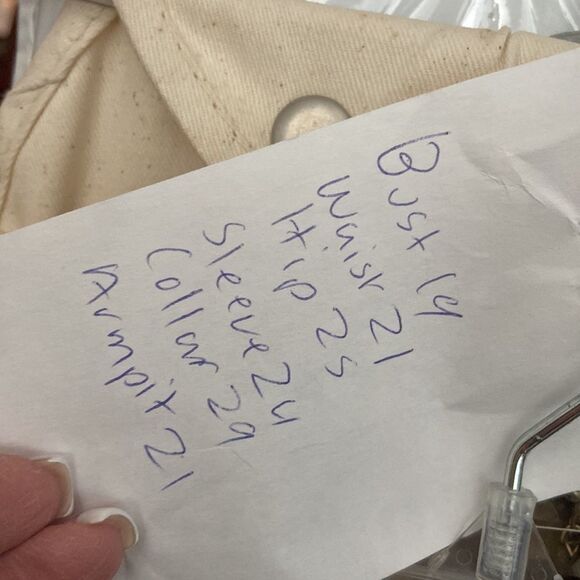 Bust 19
Waist 21
Hip 25
Sleeve 24
Collar 29
Armpit 21